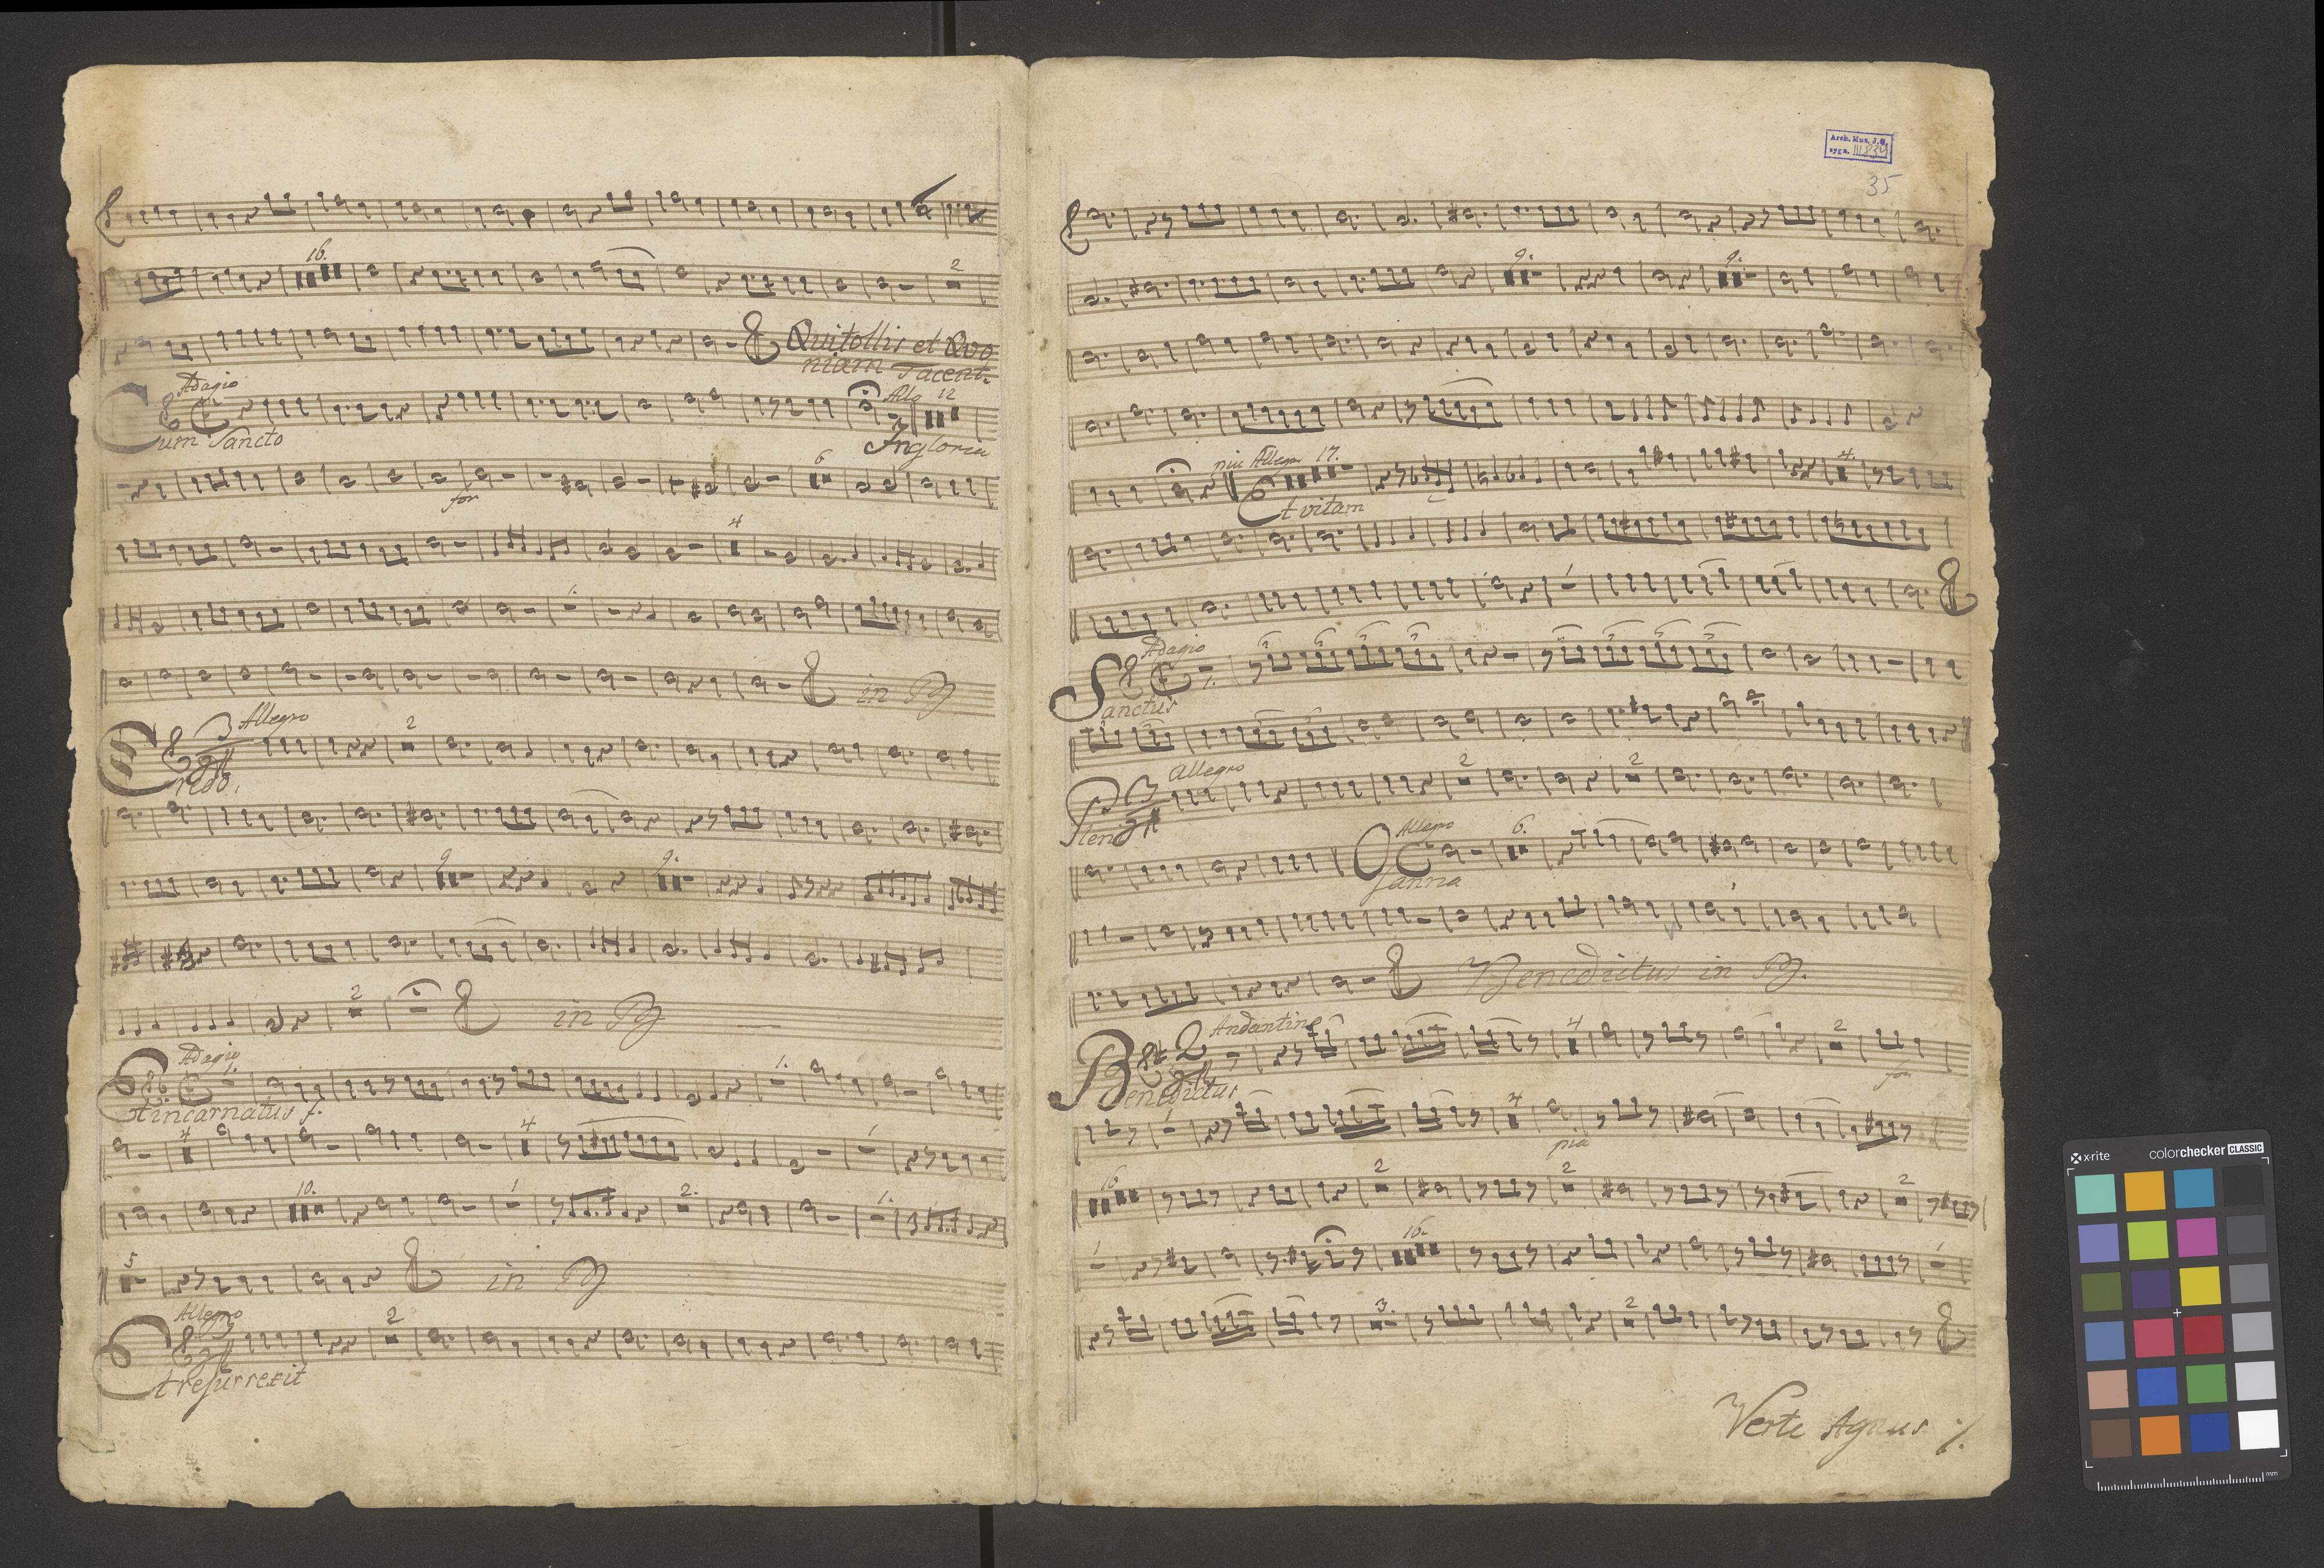 16.
2
Quitollis et Quo
niam Tacent.
Adagio
Allo 12
Cum Sancto
In gloria
6
for
4
1.
in
Allegro
2
Credo.
9
9.
2
in
Adagio
1.
1.
Et incarnatus f.
4
4
1
10.
1
2.
1.
5
in
Allegro
3
2
Et resurrexit
Arch. Mus. J.G.
sygn. III 839
35
9.
9.
piu Allegro 17.
4.
Et vitam
1
Adagio
Sanctus
Allegro
2
2
Pleni
Allegro
6.
Osanna
Benedictus in
Andantino
2
4
2
for
Benedictus
1
4
pia
16
2
2
2
1
16.
1
3.
2
Verte Agnus
x-rite
colorchecker CLASSIC
mm